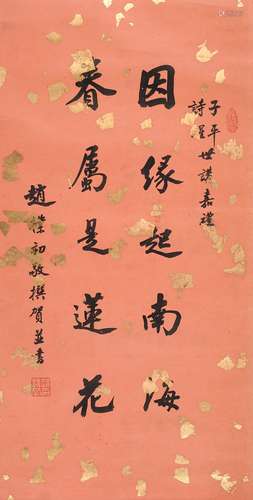 子平世講嘉禮
詩瀅
因緣起南海
眷屬是蓮花
趙樸初敬撰賀並書